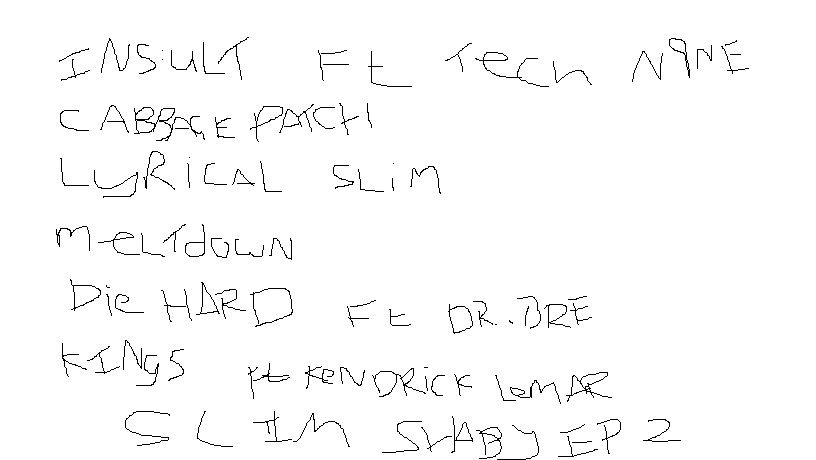 INSULT Ft Tech N9NE
CABBAGE PATCH
LyRICAL SLIM
MeLTdOWN
Die HARD Ft DR.BRE
KINgS ft KeNDRICK LeMAR
SLIM SHABY EP 2